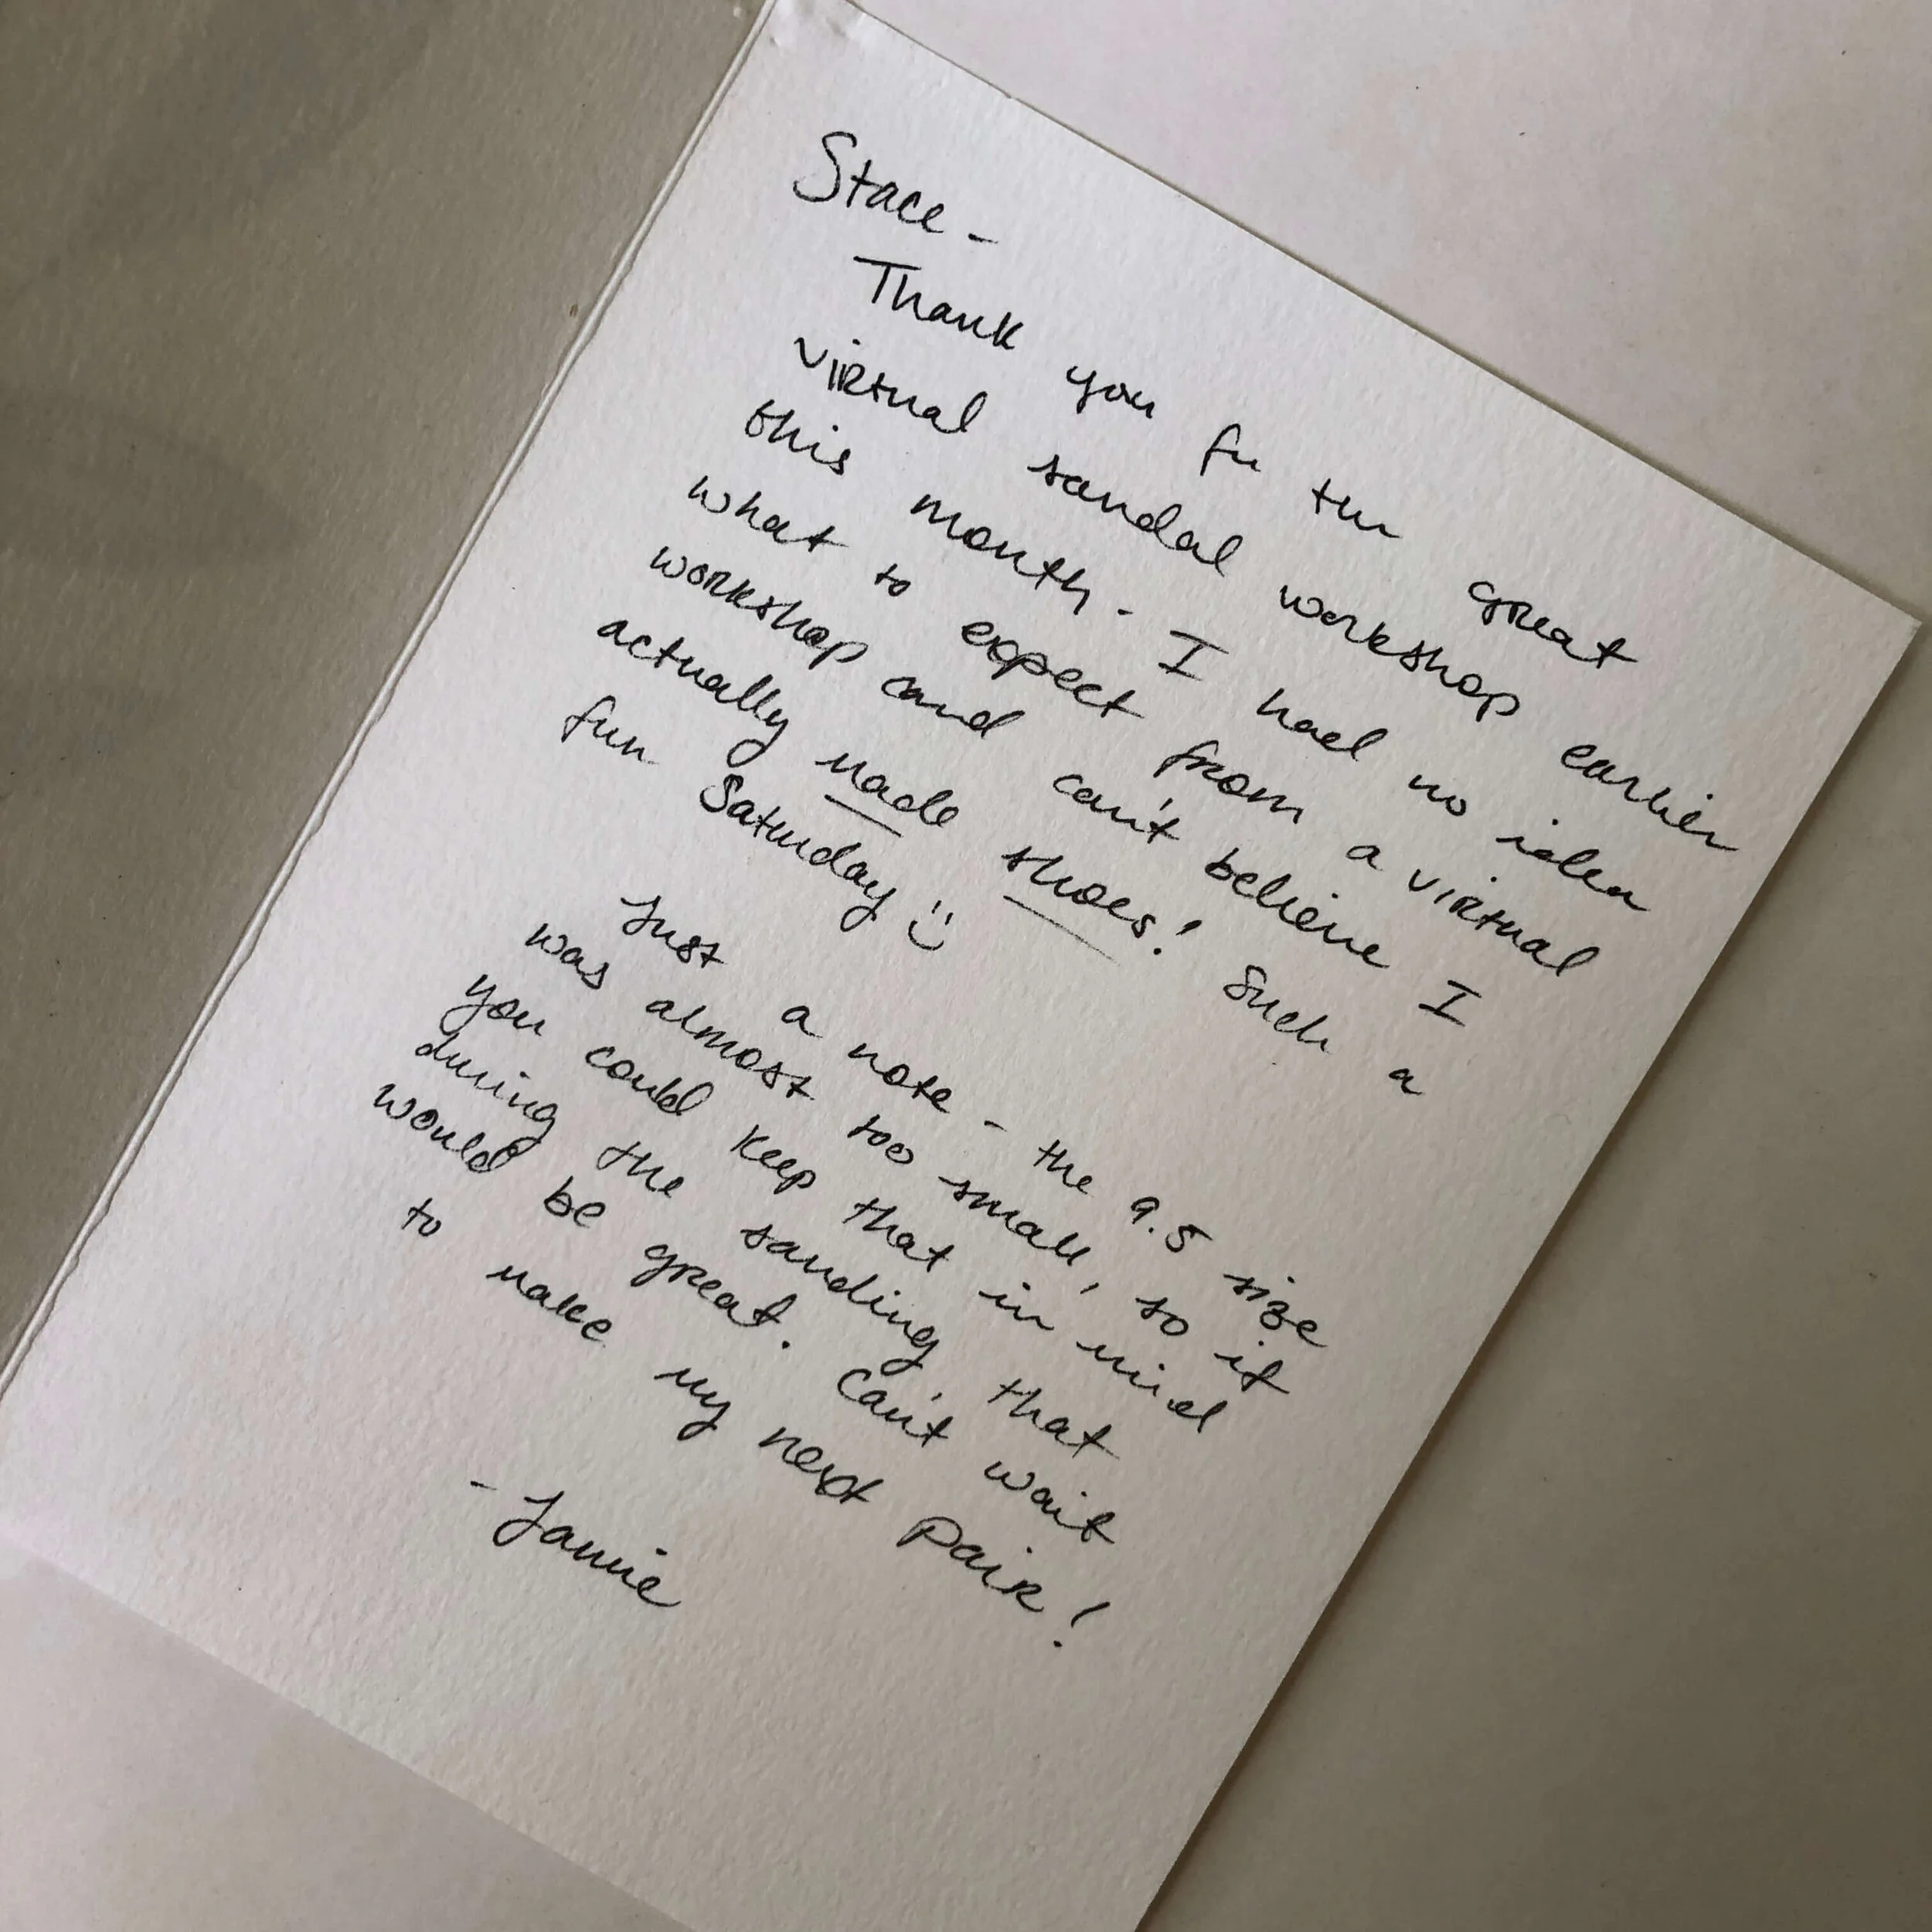 Stace -
Thank you for the great
virtual sandal workshop earlier
this month. I had no idea
what to expect from a virtual
workshop and can't believe I
actually made shoes! Such a
fun Saturday :)
Just a note - the 9.5 size
was almost too small, so if
you could keep that in mind
during the sanding that
would be great. Can't wait
to make my next pair!
- Jamie